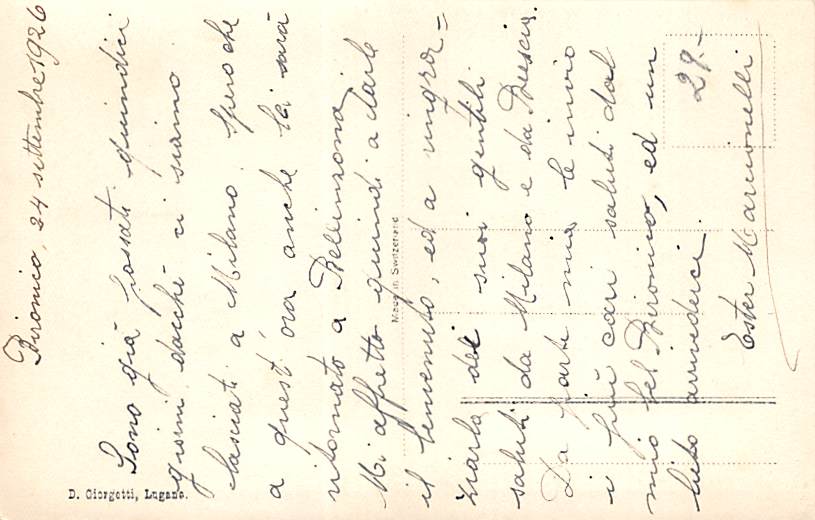 Bironico, 24 settembre 1926
Sono già passati quindici
giorni dacchè ci siamo
lasciati a Milano. Spero che
a quest'ora anche lei sarà
ritornato a Bellinzona.
Mi affretto quindi a darle
il benvenuto, ed a ringra=
ziarla dei suoi gentili
saluti da Milano e da Brescia.
Da parte mia le invio
i più cari saluti dal
mio bel Bironico, ed un
lieto arrivederci
Ester Marcionelli
29.-
Made in Switzerland
D. Giorgetti, Lugano.